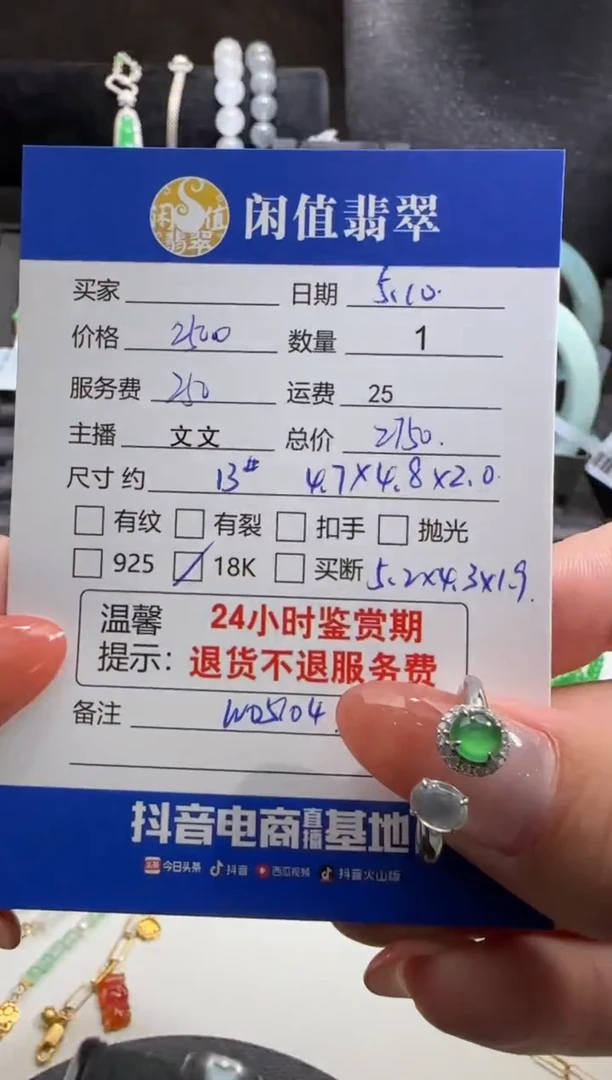 闲值翡翠
闲值翡翠
买家 日期 5.10.
价格 2500 数量 1
服务费 250 运费 25
主播 文文 总价 2750.
尺寸 约 13# 4.7×4.8×2.0
有纹 有裂 扣手 抛光
925 18K 买断 5.2×4.3×1.9.
温馨提示: 24小时鉴赏期
退货不退服务费
备注 W05104
抖音电商直播基地
今日头条 抖音 西瓜视频 抖音火山版